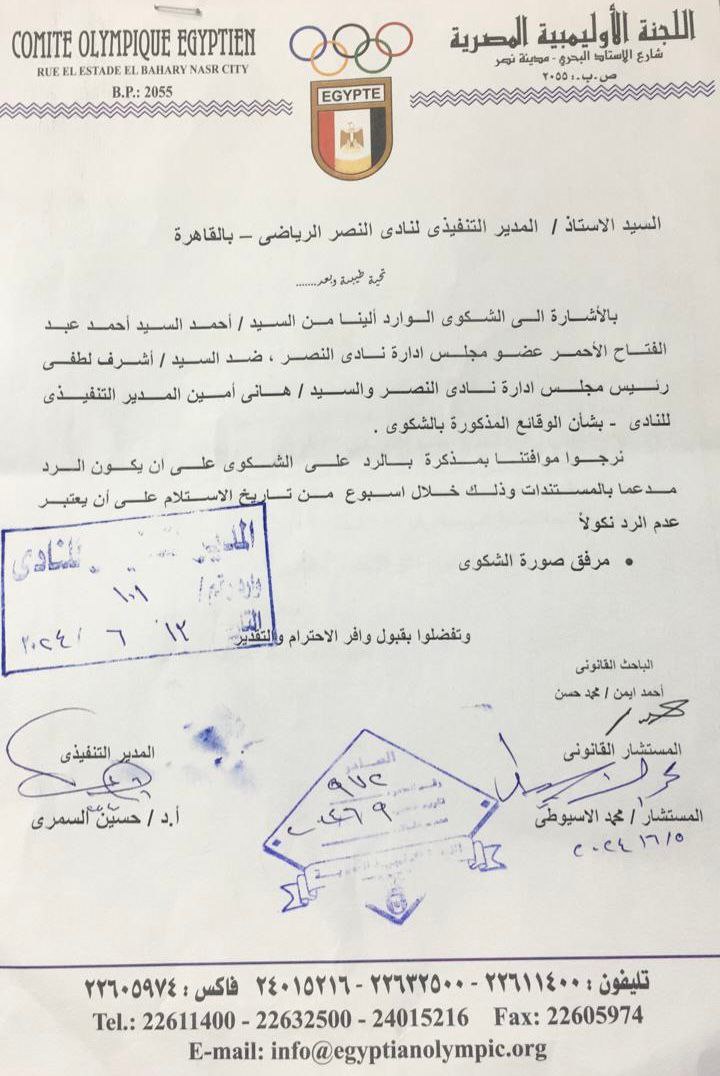 COMITE OLYMPIQUE EGYPTIEN
RUE EL ESTADE EL BAHARY NASR CITY
B.P.: 2055
EGYPTE
اللجنة الأوليمبية المصرية
شارع الإستاد البحري - مدينة نصر
ص.ب.: ٢٠٥٥
السيد الاستاذ / المدير التنفيذى لنادى النصر الرياضى – بالقاهرة
تحية طيبة وبعد.......
بالأشارة الى الشكوى الوارد ألينا من السيد / أحمد السيد أحمد عبد
الفتاح الأحمر عضو مجلس ادارة نادى النصر ، ضد السيد / أشرف لطفى
رئيس مجلس ادارة نادى النصر والسيد / هانى أمين المدير التنفيذى
للنادى - بشأن الوقائع المذكورة بالشكوى .
نرجوا موافتنا بمذكرة بالرد على الشكوى على ان يكون الرد
مدعما بالمستندات وذلك خلال اسبوع من تاريخ الاستلام على أن يعتبر
عدم الرد نكولاً
• مرفق صورة الشكوى
المدير للنادى
وارد رقم / ١٠١
١٢ / ٦ / ٢٠٢٤
وتفضلوا بقبول وافر الاحترام والتقدير
الباحث القانونى
أحمد ايمن / محمد حسن
المستشار القانونى
المستشار / محمد الاسيوطى
٢٠٢٤/٦/٥
المدير التنفيذى
أ.د / حسين السمرى
الصادر
٩٧٢
تليفون : ٢٢٦١١٤٠٠ - ٢٢٦٣٢٥٠٠ - ٢٤٠١٥٢١٦ فاكس : ٢٢٦٠٥٩٧٤
Tel.: 22611400 - 22632500 - 24015216 Fax: 22605974
E-mail: info@egyptianolympic.org